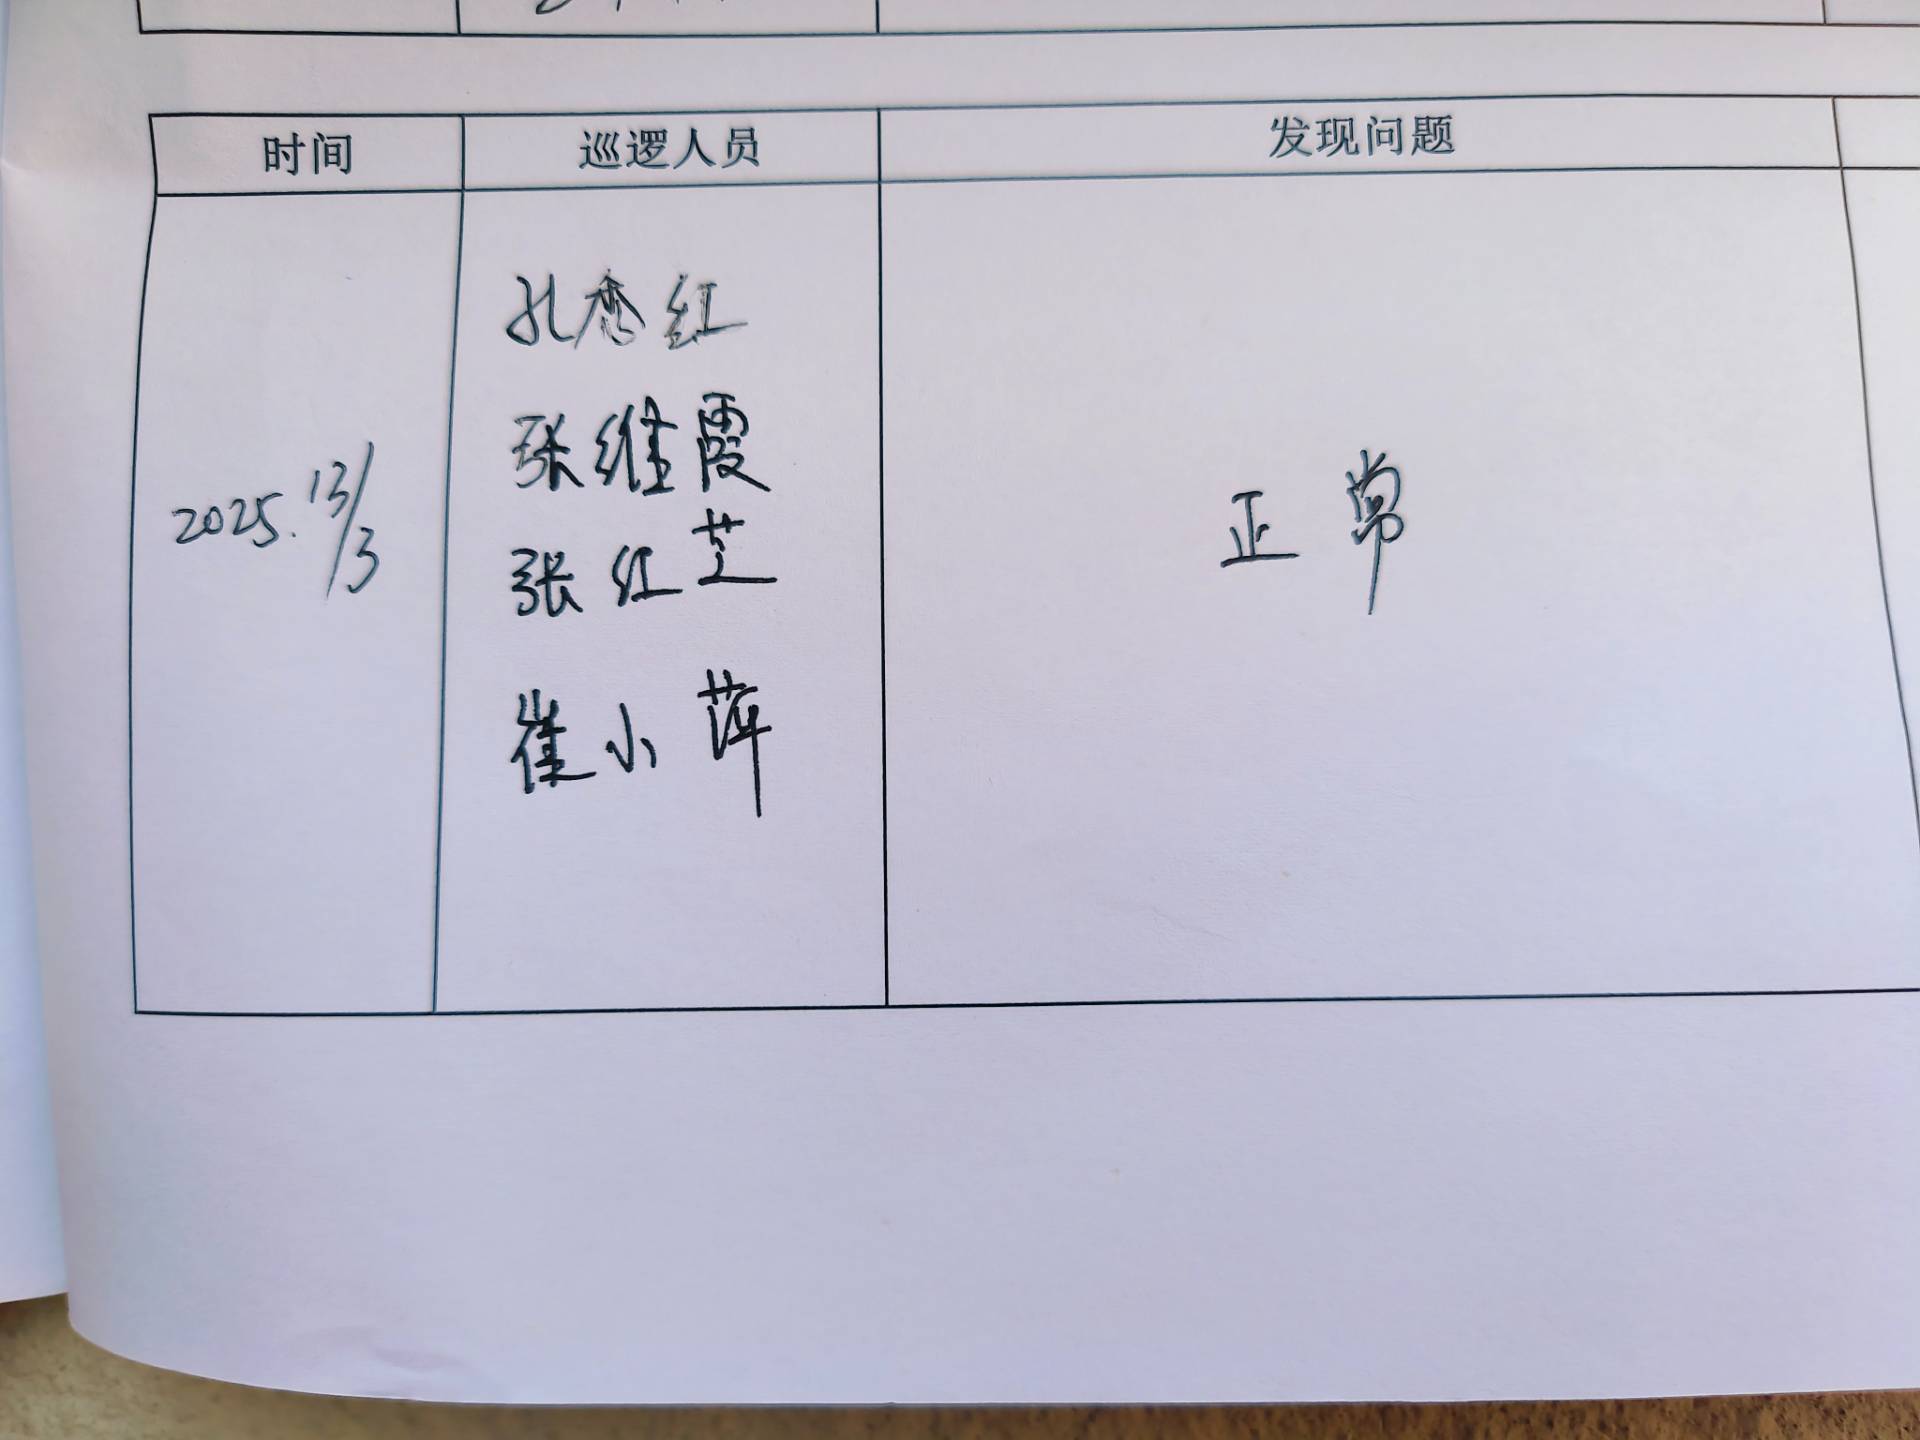 时间 巡逻人员 发现问题
孔香红
张维霞
2025.13/3 张红芝 正常
崔小萍